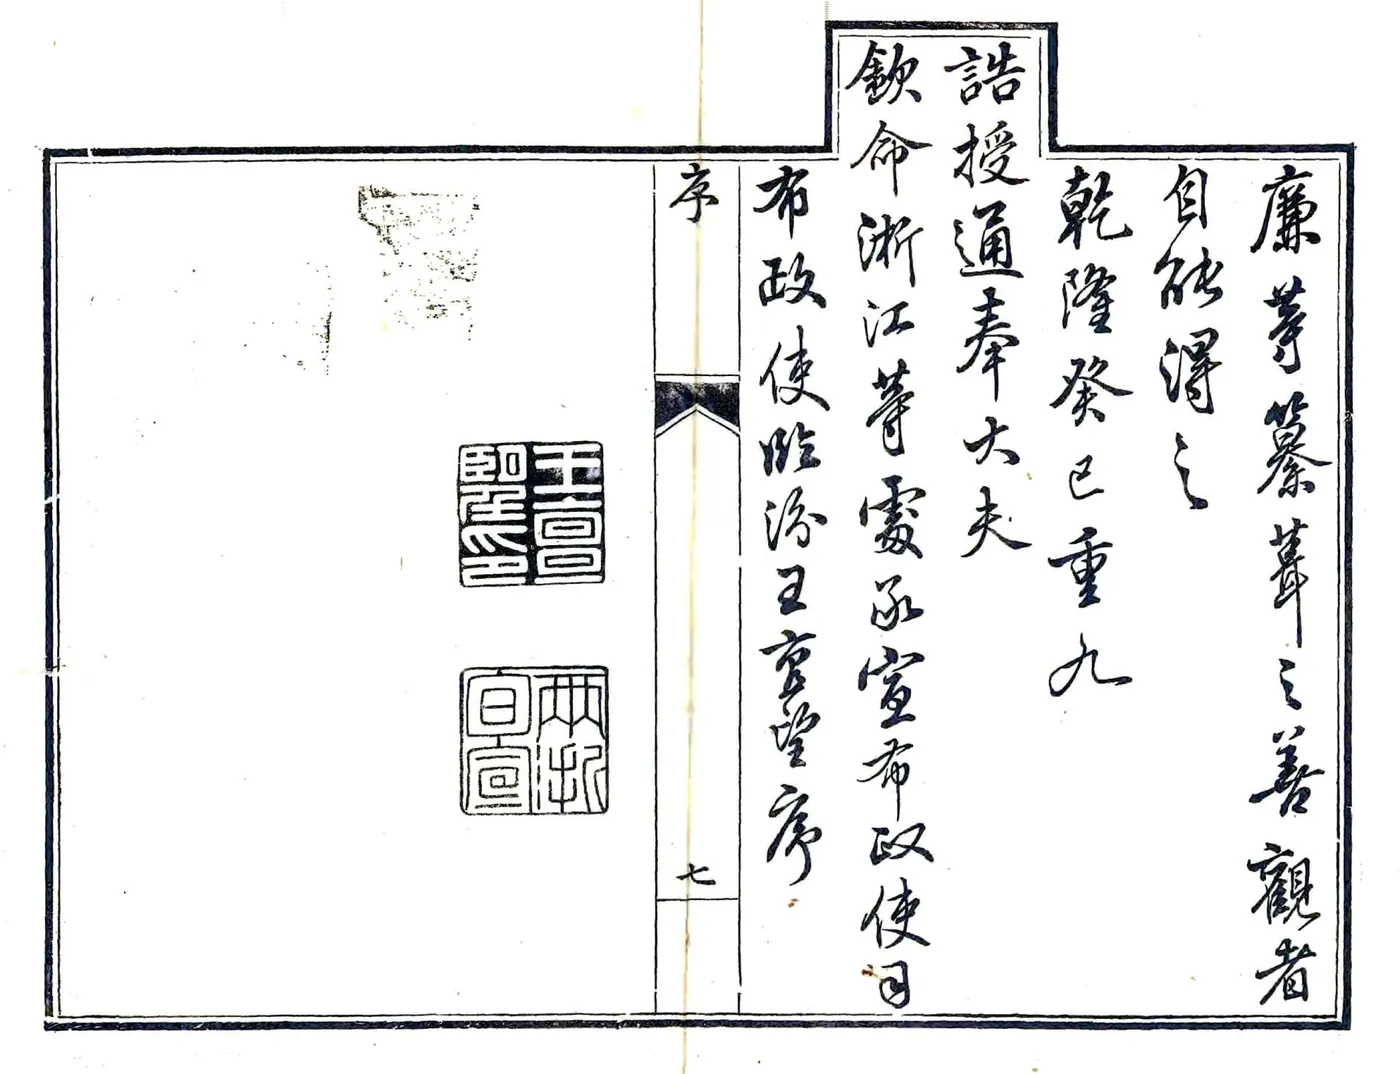 廉等纂葺之善觀者
自能得之
乾隆癸巳重九
誥授通奉大夫
欽命浙江等處承宣布政使司
布政使臨汾王亶望序
序
七
王亶望印
兩浙旬宣